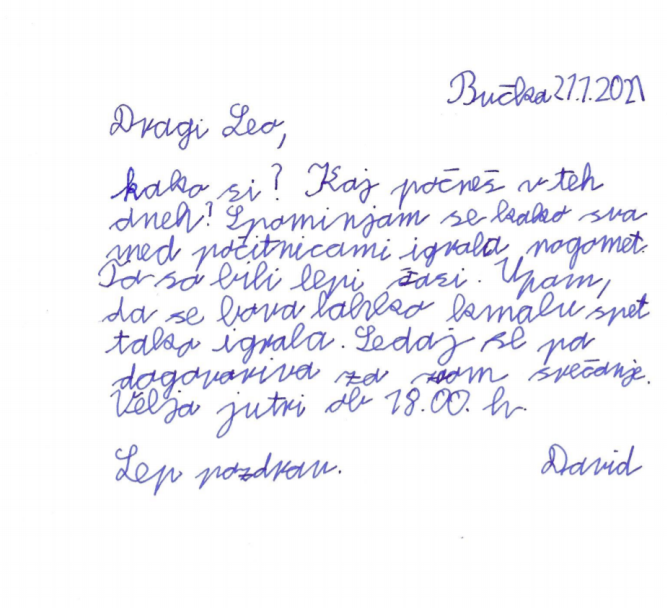 Bučka 27.7.2021
Dragi Leo,
kako si? Kaj počneš v teh
dneh? Spominjam se kako sva
med počitnicami igrala nogomet.
To so bili lepi časi. Upam,
da se bova lahko kmalu spet
tako igrala. Sedaj se pa
dogovoriva za zoom srečanje.
Velja jutri ob 18.00. h.
Lep pozdrav. David